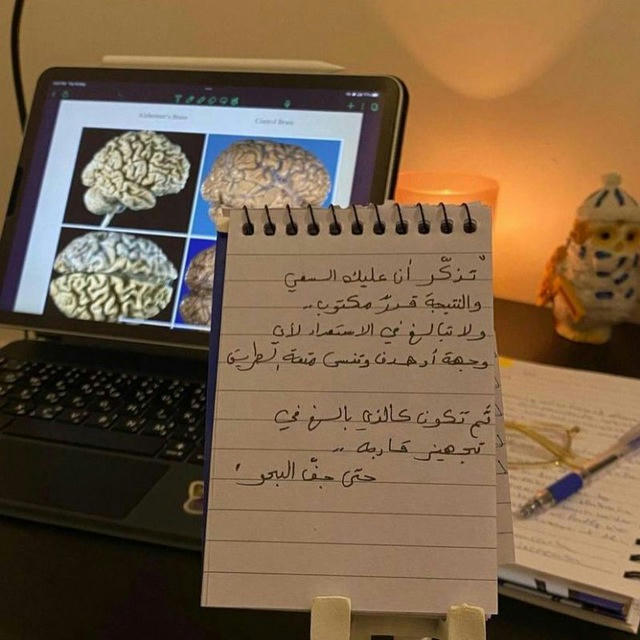 Alzheimer's Brain
Control Brain
"تذكّر أن عليك السعي
والنتيجة قدرٌ مكتوب..
ولا تبالغ في الاستعداد لأي
وجهة أو هدف وتنسى متعة الطريق
ثم تكون كالذي بالغ في
تجهيز قاربه ..
حتى جفّ البحر"